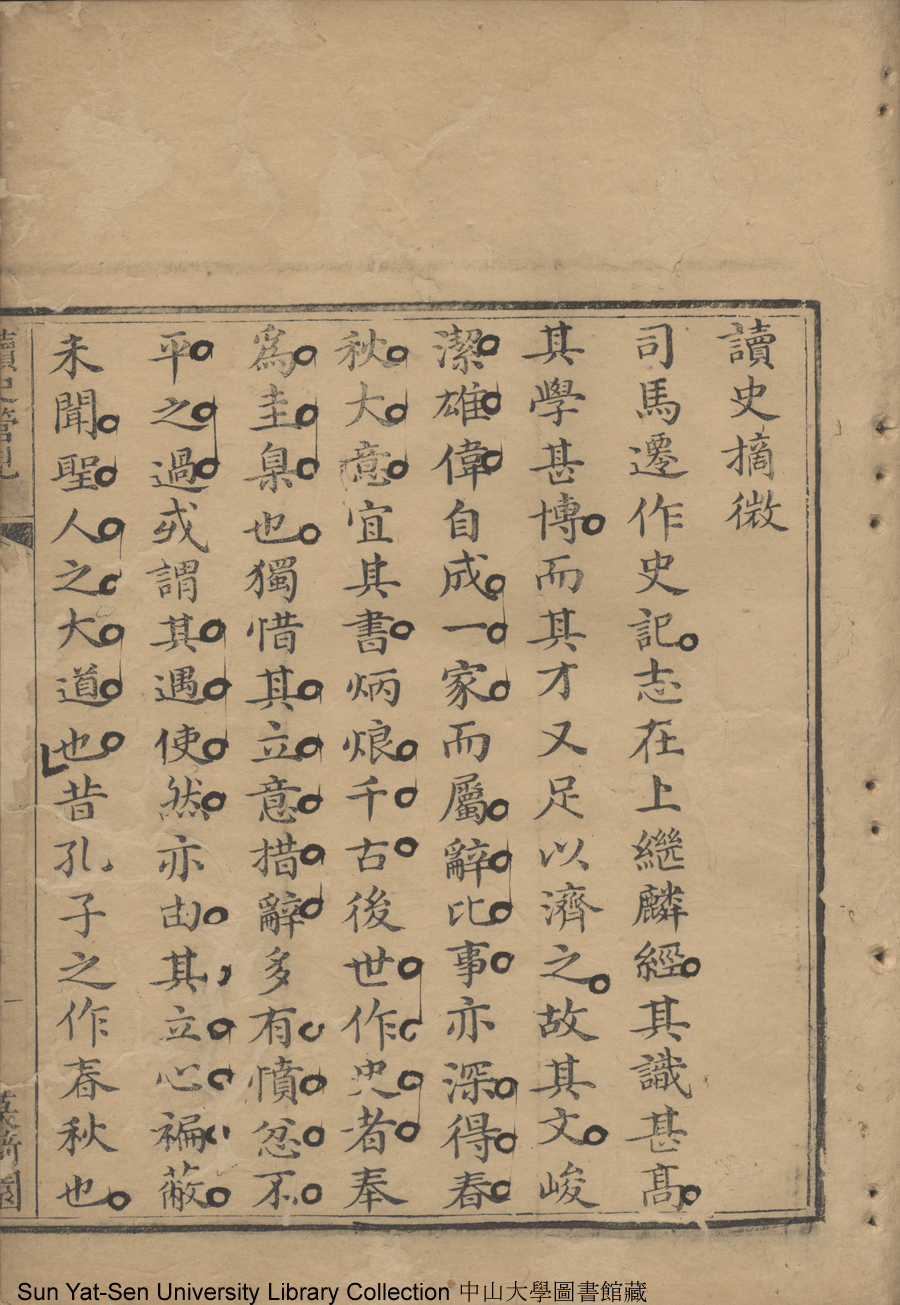 讀史摘微
司馬遷作史記志在上繼麟經其識甚髙
其學甚博而其才又足以濟之故其文峻
潔雄偉自成一家而屬辭比事亦深得春
秋大意宜其書炳烺千古後世作史者奉
爲圭臬也獨惜其立意措辭多有憤忿不
平之過或謂其遇使然亦由其立心褊蔽
未聞聖人之大道也昔孔子之作春秋也
讀史管見
一
Sun Yat-Sen University Library Collection 中山大學圖書館藏